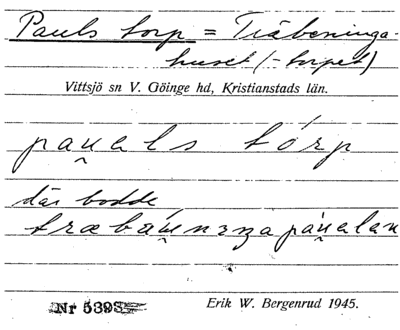 Pauls torp = Träbeninga-
huset (-torpet)
Vittsjö sn V. Göinge hd, Kristianstads län.
pau̯əls tórp
där bodde
træbáu̯nɜŋapáu̯əlan
Nr 5393
Erik W. Bergenrud 1945.